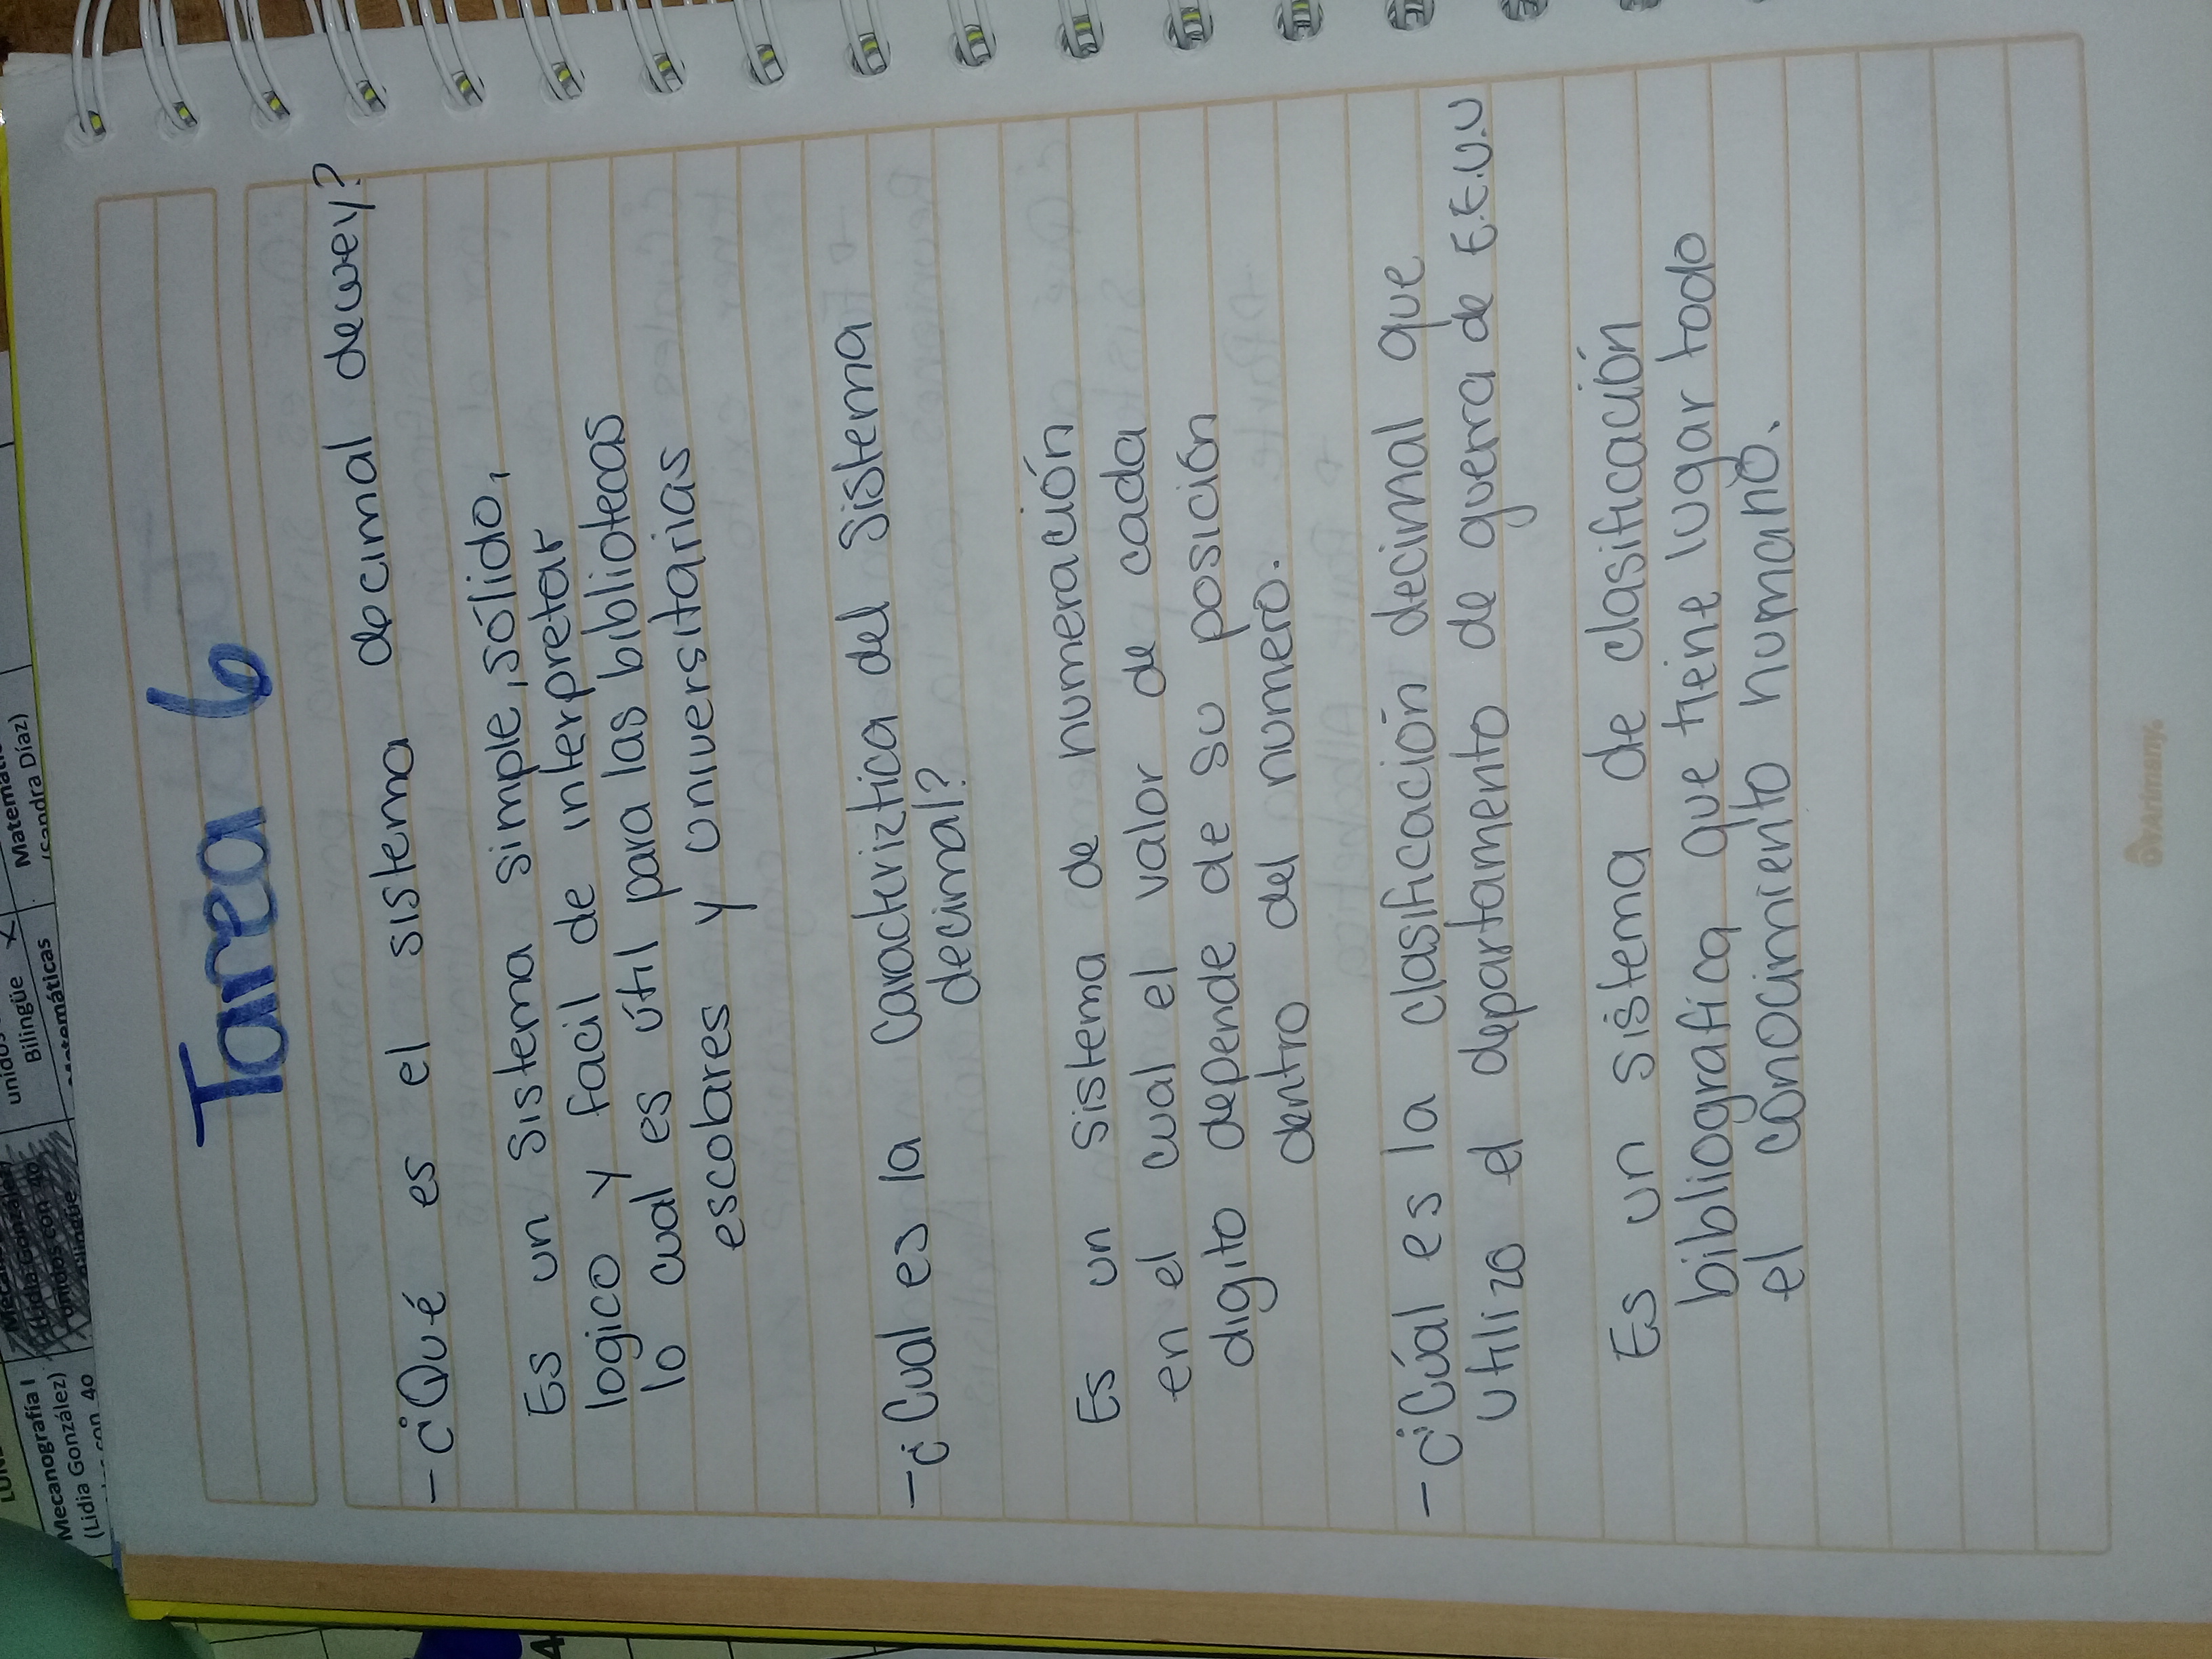 Tarea 6
- ¿Qué es el sistema decimal dewey?
Es un sistema simple, sólido,
logico y facil de interpretar
lo cual es útil para las bibliotecas
escobares y universitarias
- ¿Cual es la caracteriztica del sistema
decimal?
Es un sistema de numeración
en el cual el valor de cada
digito depende de su posición
dentro del numero.
- ¿Cúal es la clasificación decimal que
utilizo el departamento de guerra de E.E.U.U
Es un sistema de clasificación
bibliografica que tiene lugar todo
el conocimiento humano.
Arimany.
Mecanografía I
(Lidia González)
unidos
Bilingüe
Matemáticas
(Sandra Díaz)
4